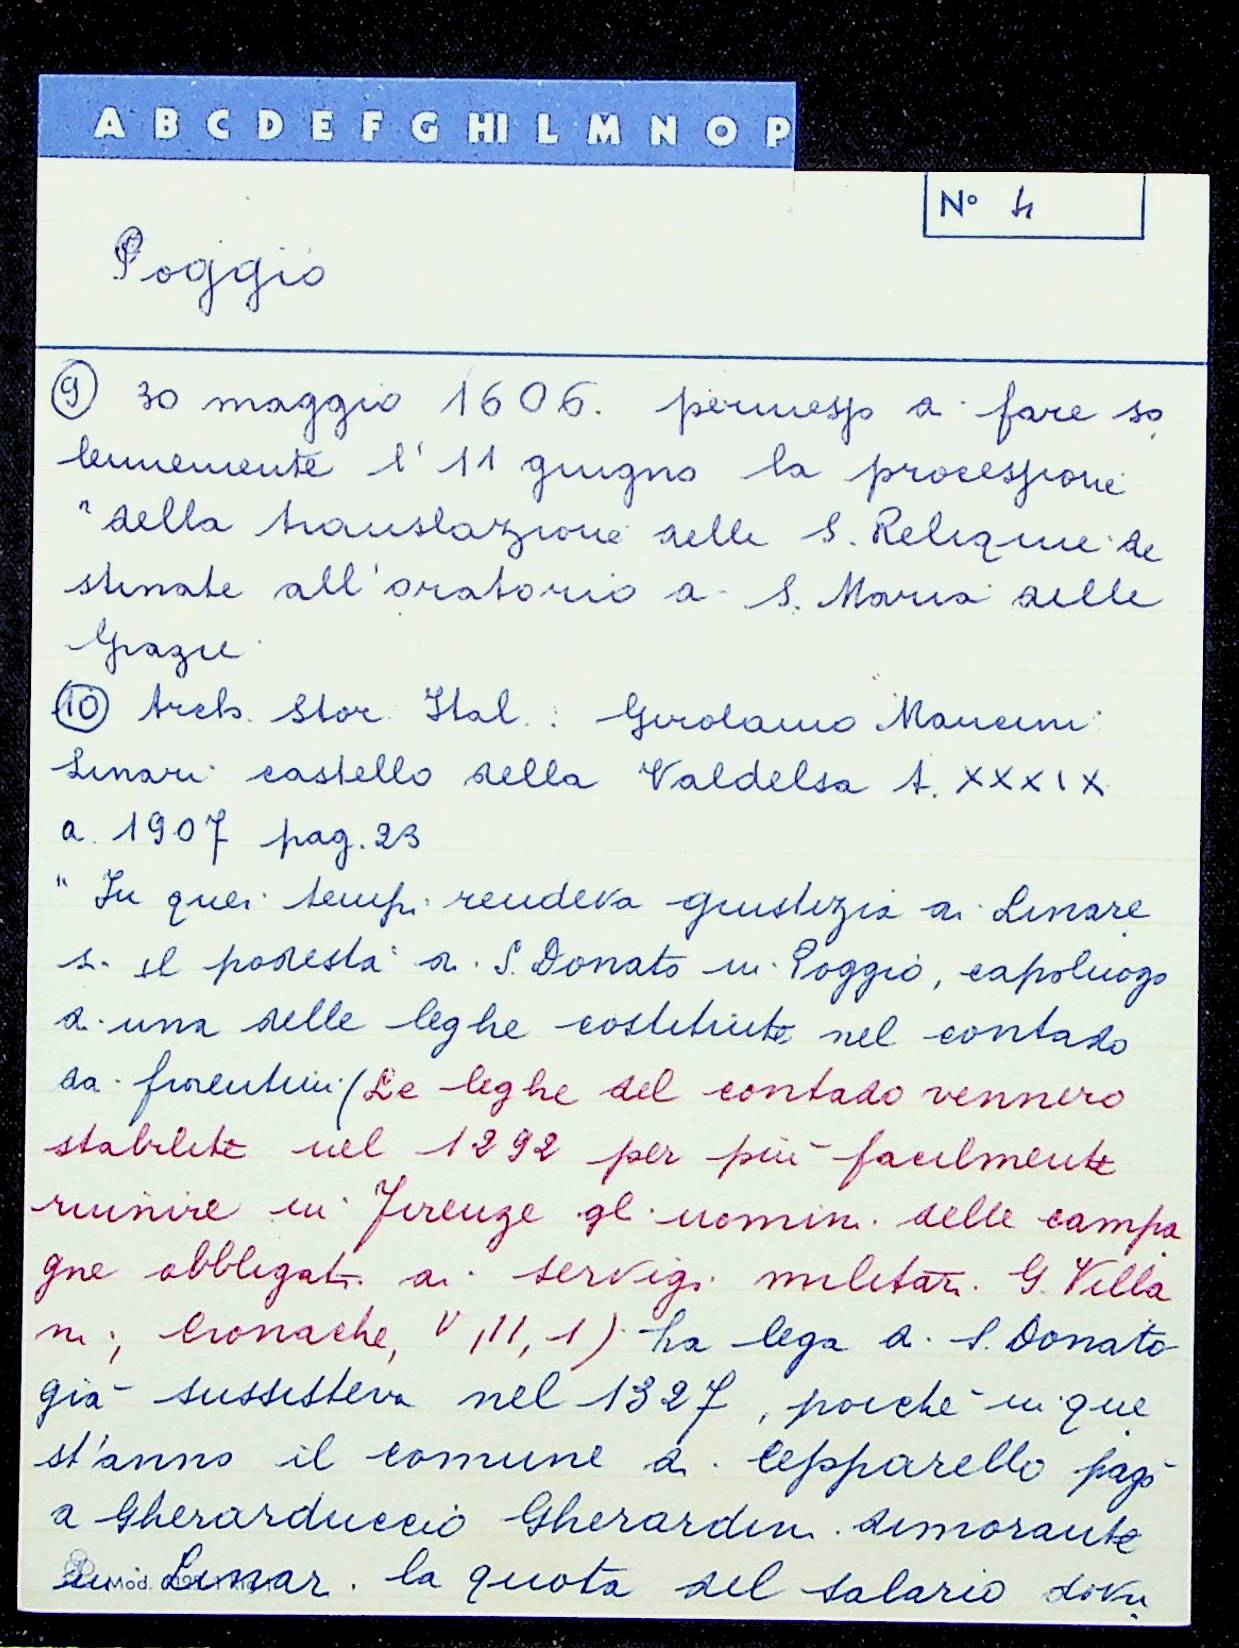 A B C D E F G HI L M N O P
N° 4
Poggio
9 30 maggio 1606. permesso di fare so
lennemente l'11 giugno la processione
"della translazione delle S. Reliquie de
stinate all'oratorio di S. Maria delle
Grazie
10 Arch. Stor. Ital. : Girolamo Mancini
Linari castello della Valdelsa t. XXXIX
a. 1907 pag. 23
" In quei tempi rendeva giustizia ai Linare
si il podestà di S. Donato in Poggio, capoluogo
di una delle leghe costituite nel contado
dai fiorentini (Le leghe del contado vennero
stabilite nel 1292 per più facilmente
riunire in Firenze gli uomini delle campa
gne obbligati ai servigi militari. G. Villa
ni; Cronache, V, II, 1) La lega di S. Donato
già sussisteva nel 1327, poichè in que
st'anno il comune di Cepparello pagò
a Gherarduccio Gherardini dimorante
in Linari la quota del salario dovu